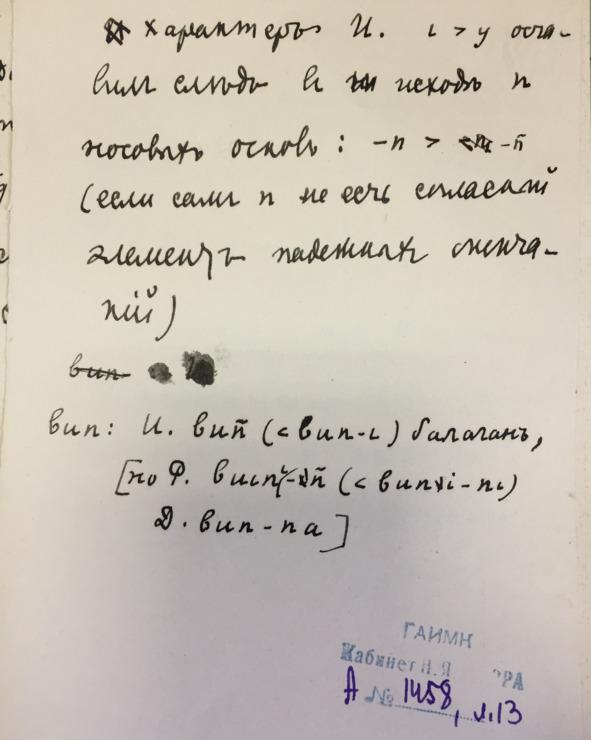 характеръ И. ι > y оста-
вилъ слѣдъ въ исходѣ n
носовыхъ основъ: -n > -n̄
(если само n не есть согласный
элементъ падежныхъ оконча-
ній)
вип
вип: И. вип̄ (< вип-ι) балаганъ,
[но Р.
Д. вип-па]
ГАИМК
Кабинет Н.Я РРА
А № 1458, л.13